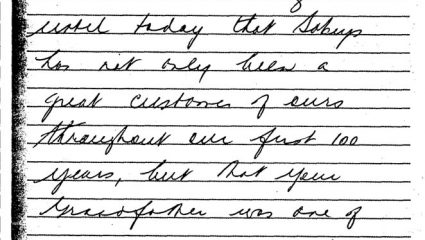 until today that Sohys
has not only been a
great customer of ours
throughout our first 100
years, but that your
Grandfather was one of